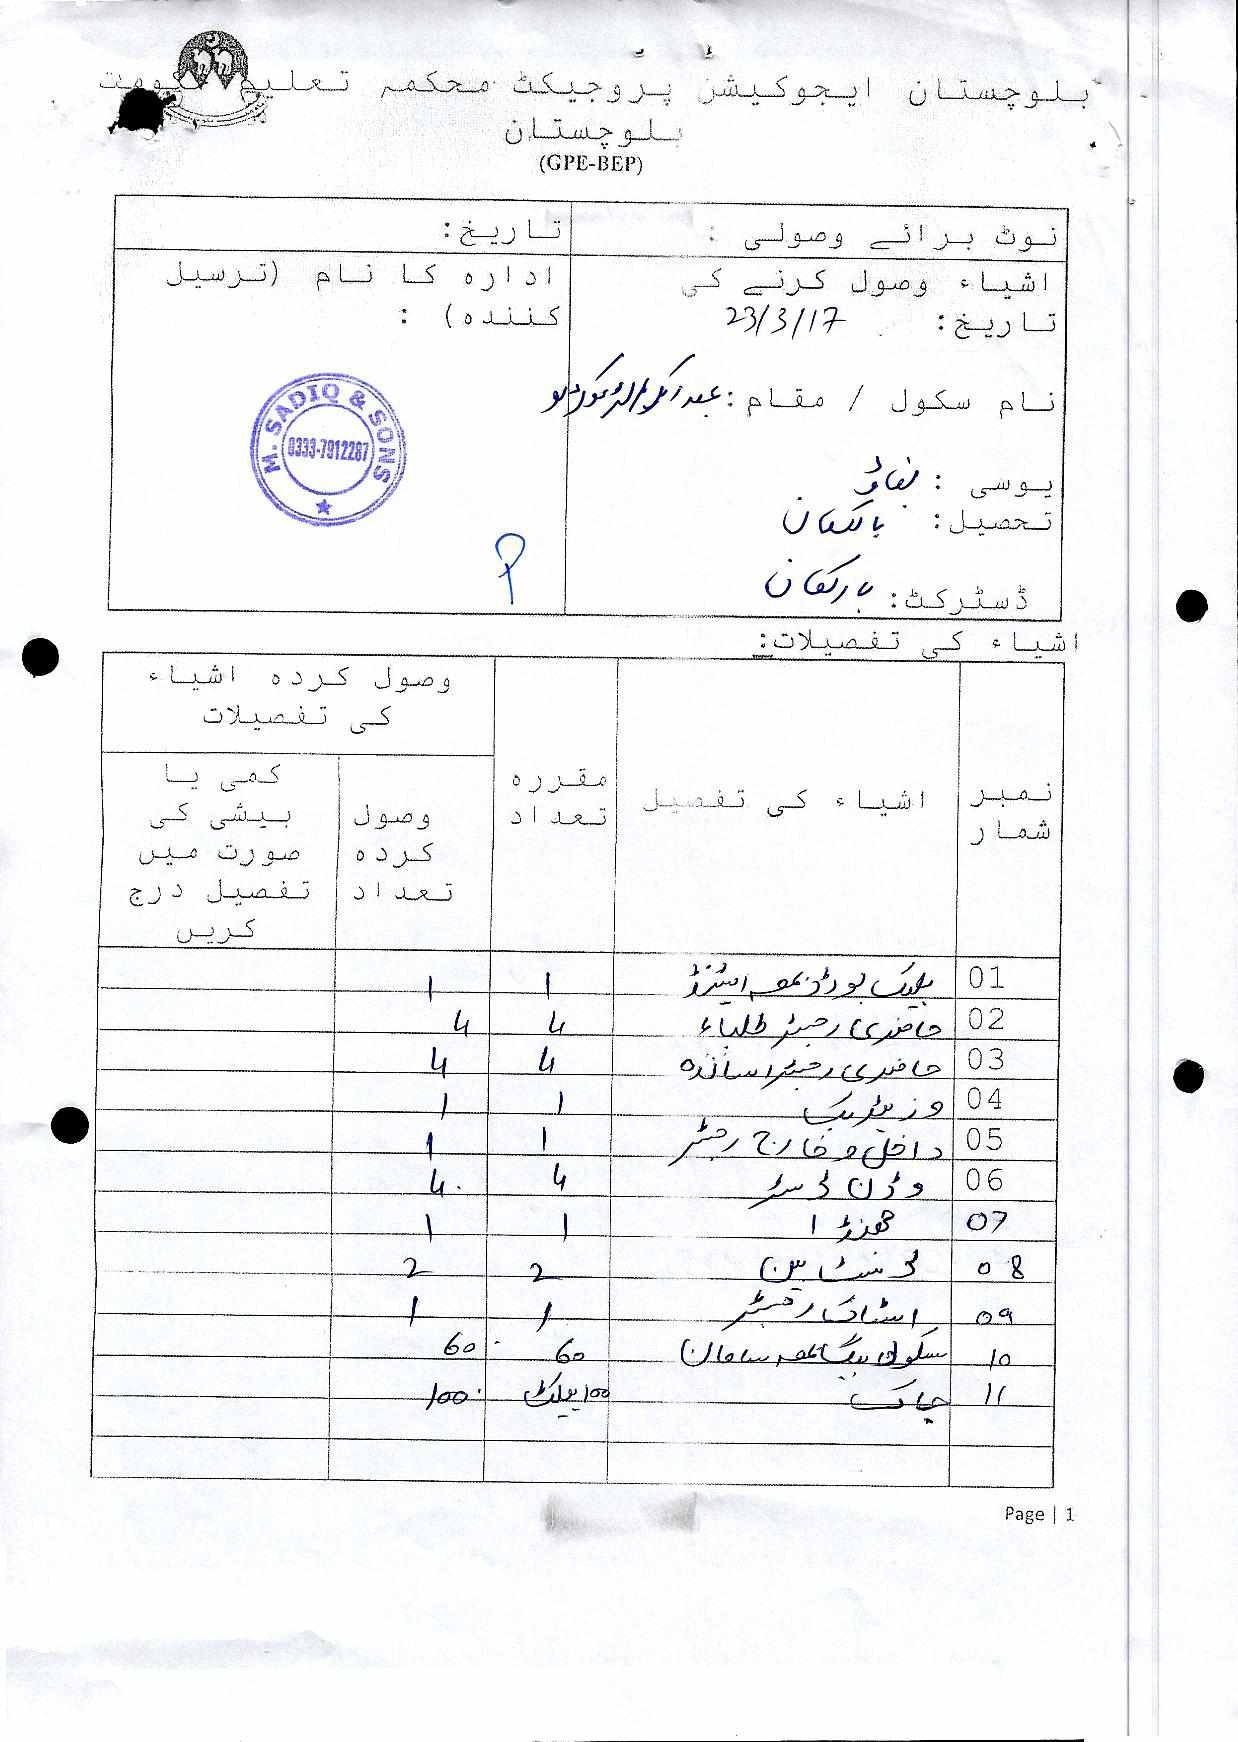 بلوچستان ایجوکیشن پروجیکٹ محکمہ تعلیم حکومت
بلوچستان
(GPE-BEP)
نوٹ برائے وصولی :
تاریخ:
اشیاء وصول کرنے کی
تاریخ: 23/3/17
نام سکول / مقام :
یوسی :
تحصیل: بارکھان
ڈسٹرکٹ: بارکھان
ادارہ کا نام (ترسیل
کنندہ) :
M. SADIQ & SONS
0333-7912287
اشیاء کی تفصیلات:
نمبر شمار
اشیاء کی تفصیل
مقررہ تعداد
وصول کردہ اشیاء کی تفصیلات
وصول کردہ تعداد
کمی یا بیشی کی صورت میں تفصیل درج کریں
01 بلیک بورڈ بمعہ اسٹینڈ 1 1
02 حاضری رجسٹر طلباء 4 4
03 حاضری رجسٹر اساتذہ 4 4
04 وزیٹر بک 1 1
05 داخل و خارج رجسٹر 1 1
06 4 4
07 جھنڈا 1 1
08 2 2
09 اسٹاک رجسٹر 1 1
10 سکول بیگ بمعہ سامان 60 60
11 چاک 100 پیکٹ 100
Page | 1